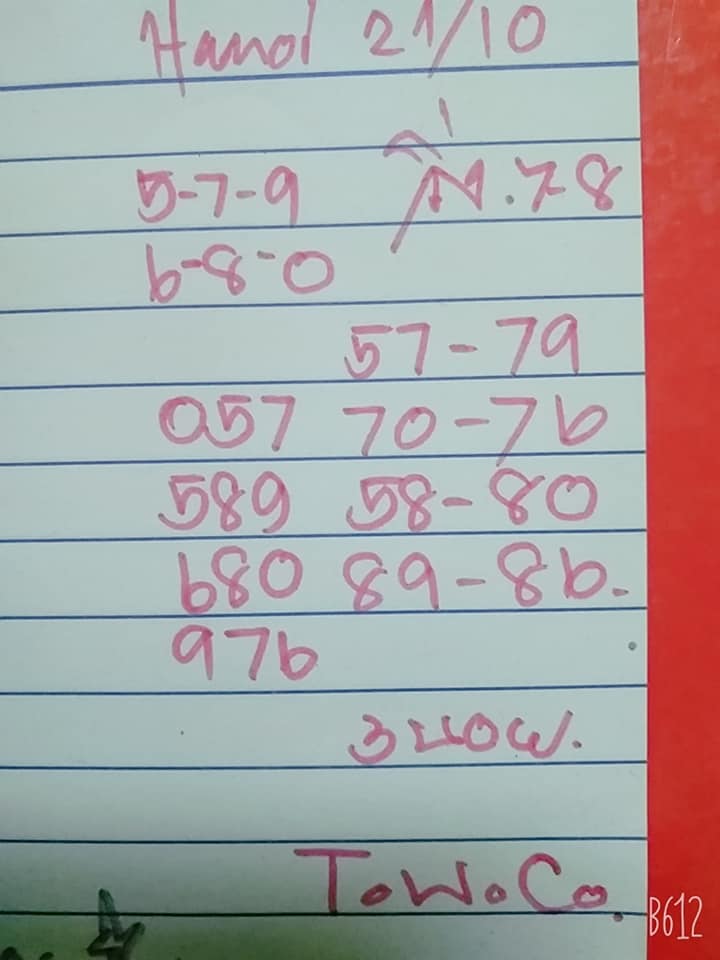 Hanoi 21/10
5-7-9
6-8-0
.78
57-79
057 70-76
589 58-80
680 89-86.
976
T.W.Co.
B612